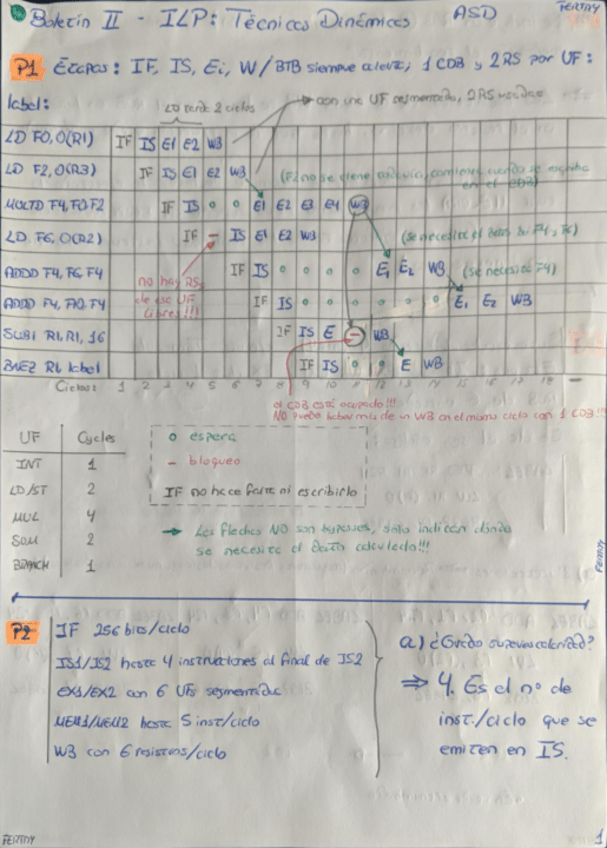 Boletín II - ILP: Técnicas Dinámicas ASD FERTNY
P1 Etapas: IF, IS, Ei, W / BTB siempre acierta, 1 CDB y 2 RS por UF:
label: LD tarda 2 ciclos con una UF segmentada, 2RS
LD F0, 0(R1) IF IS E1 E2 WB
LD F2, 0(R3) IF IS E1 E2 WB (F2 no se tiene cuando se escriba en el CDB)
MULTD F4, F0 F2 IF IS o o E1 E2 E3 E4 WB
LD F6, 0(R2) IF - IS E1 E2 WB (se necesita el
ADDD F4, F6, F4 IF IS o o o o E1 E2 WB (se necesita F4)
no hay RS de esa UF libres!!!
ADDD F4, F4 IF IS o o o o o o o E1 E2 WB
SUBI R1, R1, 16 IF IS E - WB
BNEZ R1, label IF IS o o E WB
Ciclos: 1 2 3 4 5 6 7 8 9 10 11 12 13 14 15 16 17 18 -
el CDB está ocupado!!!
NO puede haber más de un WB en el mismo ciclo con 1 CDB!!!
UF Cycles
INT 1
LD/ST 2
MUL 4
SUM 2
BRANCH 1
o espera
- bloqueo
IF no hace falta ni escribirlo
→ Las flechas NO son bypasses, solo indican dónde
se necesita el dato calculado!!!
FERTNY
P2 IF 256 bits/ciclo
IS1/IS2 hasta 4 instrucciones al final de IS2
EX1/EX2 con 6 UFs segmentadas
MEM1/MEM2 hasta 5 inst/ciclo
WB con 6 registros/ciclo
a) ¿Grado superescalaridad?
⇒ 4. Es el nº de
inst./ciclo que se
emiten en IS.
FERTNY
1